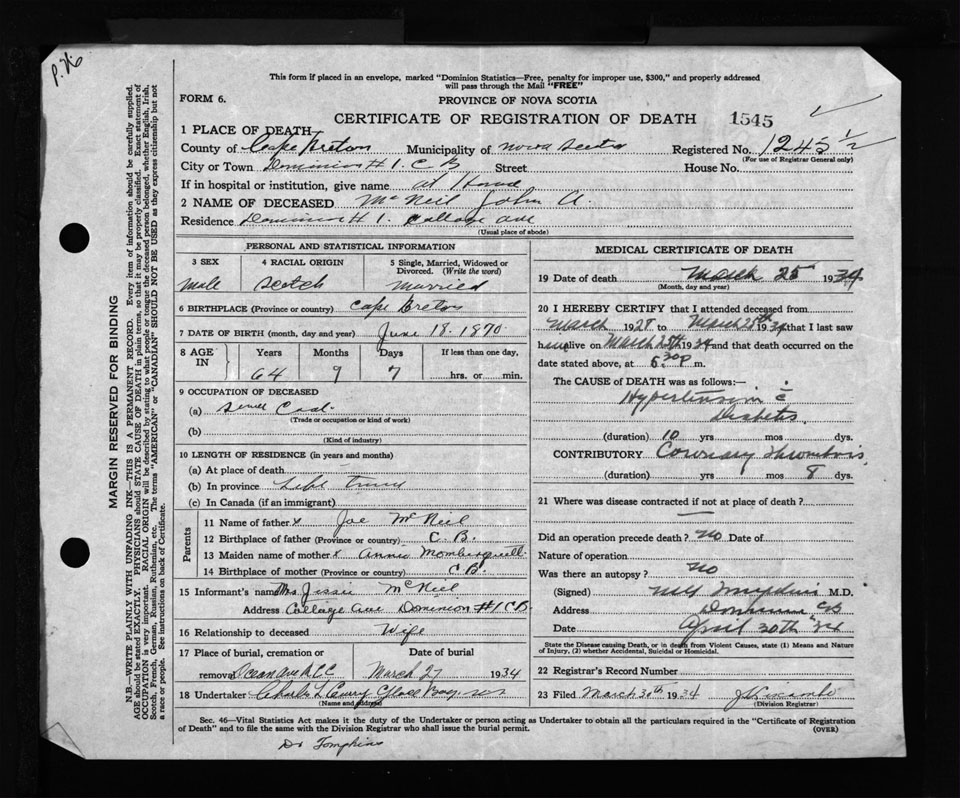 P.H.6
This form if placed in an envelope, marked "Dominion Statistics—Free, penalty for improper use, $300," and properly addressed
will pass through the Mail "FREE"
FORM 6.
PROVINCE OF NOVA SCOTIA
CERTIFICATE OF REGISTRATION OF DEATH 1545
1 PLACE OF DEATH
County of Cape Breton Municipality of Nova Scotia Registered No. 1245 1/2
(For use of Registrar General only)
City or Town Dominion # 1. C B Street House No.
If in hospital or institution, give name at Home
2 NAME OF DECEASED McNeil John A.
Residence Dominion # 1. Collage ave
(Usual place of abode)
MARGIN RESERVED FOR BINDING
N.B.—WRITE PLAINLY WITH UNFADING INK—THIS IS A PERMANENT RECORD. Every item of information should be carefully supplied.
AGE should be stated EXACTLY. PHYSICIANS should STATE CAUSE OF DEATH in plain terms, so that it may be properly classified. Exact statement of
OCCUPATION is very important. RACIAL ORIGIN will be described by stating to what people or tongue the deceased person belonged, whether English, Irish,
Scotch, French, German, Russian, Ruthenian, etc. The terms "AMERICAN" or "CANADIAN" SHOULD NOT BE USED as they express citizenship but not
a race or people. See instructions on back of Certificate.
PERSONAL AND STATISTICAL INFORMATION
3 SEX 4 RACIAL ORIGIN 5 Single, Married, Widowed or
Divorced. (Write the word)
male Scotch Married
6 BIRTHPLACE (Province or country) Cape Breton
7 DATE OF BIRTH (month, day and year) June 18. 1870
8 AGE IN Years Months Days If less than one day,
64 9 7 hrs. or min.
9 OCCUPATION OF DECEASED
(a) Coal
(Trade or occupation or kind of work)
(b)
(Kind of industry)
10 LENGTH OF RESIDENCE (in years and months)
(a) At place of death
(b) In province Life
(c) In Canada (if an immigrant)
Parents
11 Name of father x Joe McNeil
12 Birthplace of father (Province or country) C. B.
13 Maiden name of mother x Annie
14 Birthplace of mother (Province or country) C B.
15 Informant's name Mrs. Jissie McNeil
Address Collage Ave Dominion #1 CB
16 Relationship to deceased Wife
17 Place of burial, cremation or Date of burial
removal March 27 1934
18 Undertaker Charles L Curry Glace Bay
(Name and address)
MEDICAL CERTIFICATE OF DEATH
19 Date of death March 25 1934
(Month, day and year)
20 I HEREBY CERTIFY that I attended deceased from
March 1928 to March 25th 1934 that I last saw
him alive on March 25th 1934 and that death occurred on the
date stated above, at 6.30 p m.
The CAUSE OF DEATH was as follows:—
Hypertension c̄
Diabetes
(duration) 10 yrs mos dys.
CONTRIBUTORY Coronary Thrombosis
(duration) yrs mos 8 dys.
21 Where was disease contracted if not at place of death?
Did an operation precede death? no Date of
Nature of operation
Was there an autopsy? no
(Signed) Tompkins M.D.
Address Dominion CB
Date April 30th 34
State the Disease causing Death, or in death from Violent Causes, state (1) Means and Nature of Injury, (2) whether Accidental, Suicidal or Homicidal.
22 Registrar's Record Number
23 Filed March 30th 1934
(Division Registrar)
Sec. 46—Vital Statistics Act makes it the duty of the Undertaker or person acting as Undertaker to obtain all the particulars required in the "Certificate of Registration
of Death" and to file the same with the Division Registrar who shall issue the burial permit. (OVER)
Dr Tompkins